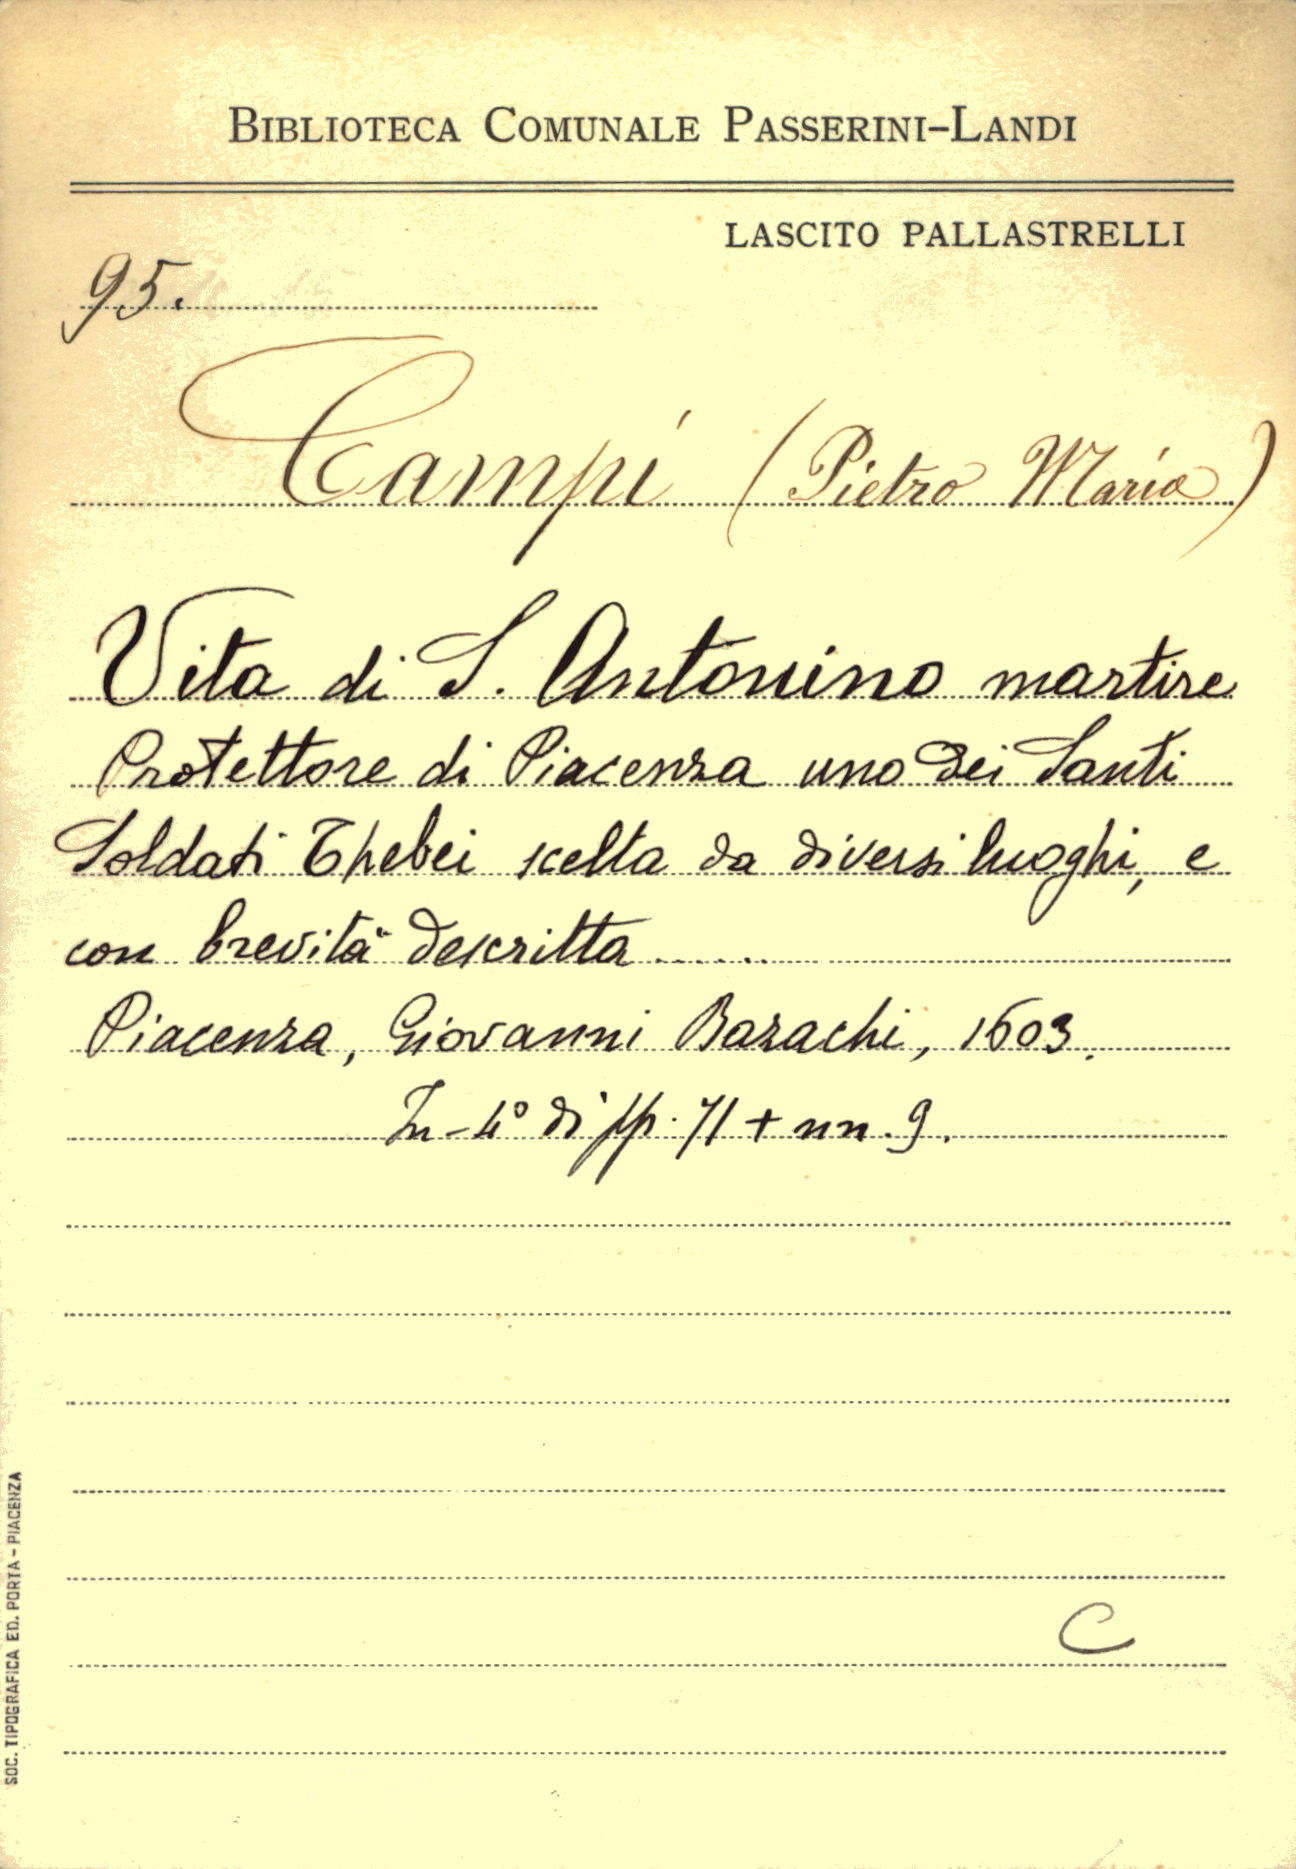 BIBLIOTECA COMUNALE PASSERINI-LANDI
LASCITO PALLASTRELLI
95.
Campi (Pietro Maria)
Vita di S. Antonino martire
Protettore di Piacenza uno dei Santi
Soldati Thebei scelta da diversi luoghi, e
con brevità descritta ......
Piacenza, Giovanni Bazachi, 1603.
In-4° di pp. 71 + nn. 9.
C
SOC. TIPOGRAFICA ED. PORTA - PIACENZA